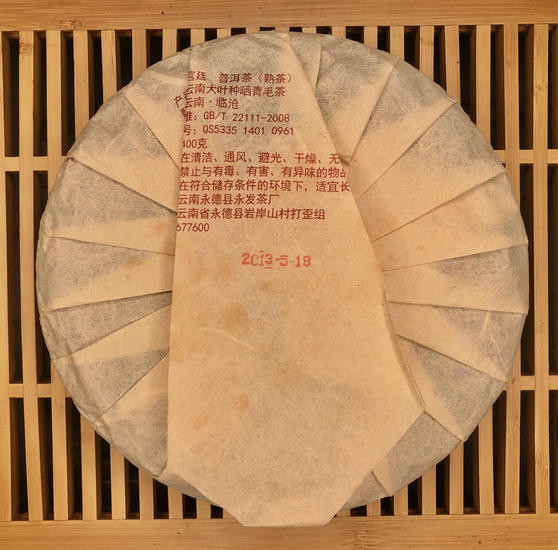 宫廷 普洱茶（熟茶）
云南大叶种晒青毛茶
产 云南·临沧
准：GB/T 22111-2008
号：QS5335 1401 0961
400克
在清洁、通风、避光、干燥、无
禁止与有毒、有害、有异味的物品
在符合储存条件的环境下，适宜长
云南永德县永发茶厂
云南省永德县岩岸山村打歪组
677600
2013-5-18